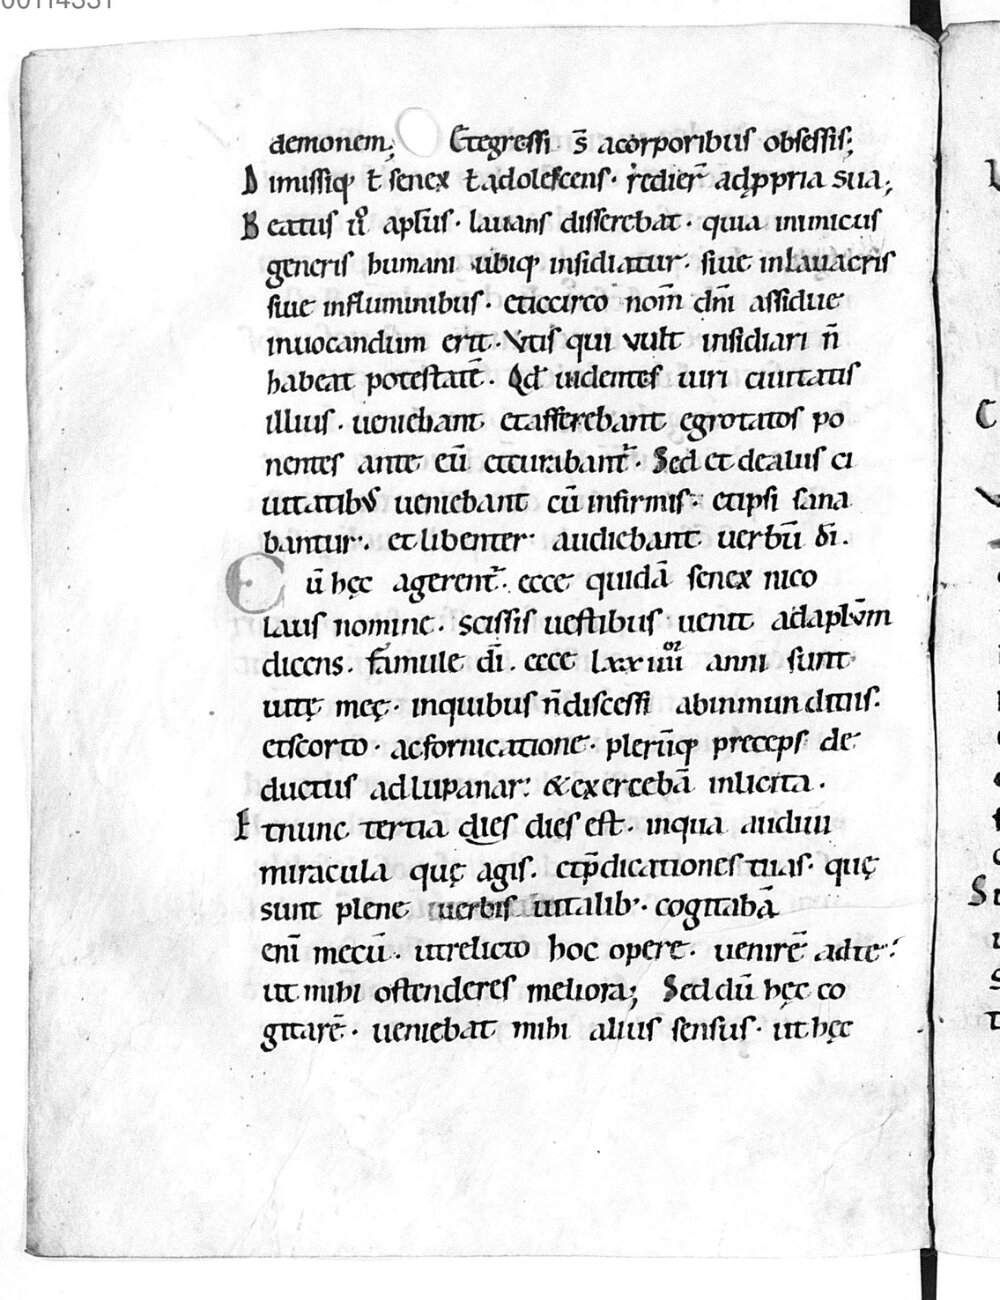 00114331
demonem; Etegressi s̄ acorporibus obsessis;
D imissiq; ē senex ēadolescens. r̄edier̄ adp̱pria sua;
B eatus u͛ apl̄us. lauans disserebat. quia inimicus
generis humani ubiq; insidiatur. siue inlauacris
siue influminibus. eticcirco nom̄ dn̄i assidue
inuocandum erit. Vtis qui vult insidiari n̄
habeat potestatē. Qd̄ uidentes uiri ciuitatis
illius. ueniebant etafferebant egrotatos po
nentes ante eū etcurabant̄. Sed et dealiis ci
uitatibus ueniebant cū infirmis. etipsi sana
bantur. et libenter audiebant uerbū dī.
C ū hęc agerent̄. ecce quidā senex nico
laus nomine. scissis uestibus uenit adaplm̄
dicens. famule dī. ecce lxxiiii anni sunt
uitę meę. inquibus n̄discessi abinmunditiis.
etscorto. acfornicatione. plerūq; preceps de
ductus adlupanar. &excercebā inlicita.
E tnunc tertia dies dies est. inqua audiui
miracula quę agis. etp̄dicationes tuas. quę
sunt plene uerbis uitalib;. cogitabā
enī mecū. utrelicto hoc opere. uenirē adte.
ut mihi ostenderes meliora; Sed dū hęc co
gitarē. ueniebat mihi alius sensus. ut hęc